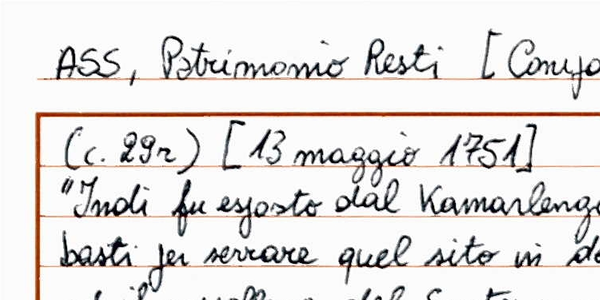 ASS, Patrimonio Resti [
(c. 29r) [13 maggio 1751]
"Indi fu esposto dal Kamarleng
basti per serrare quel sito in